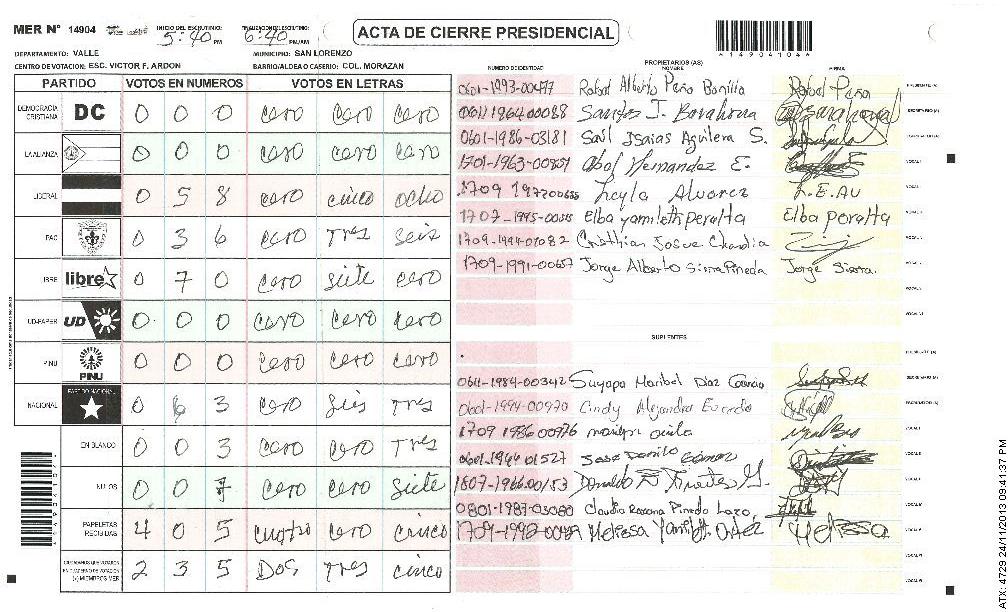 MER Nº 14904 INICIO DEL ESCRUTINIO: 5:40 PM FINALIZACION DEL ESCRUTINIO: 6:40 PM/AM ACTA DE CIERRE PRESIDENCIAL *149041044*
DEPARTAMENTO: VALLE MUNICIPIO: SAN LORENZO
CENTRO DE VOTACION: ESC. VICTOR F. ARDON BARRIO/ALDEA O CASERIO: COL. MORAZAN
PARTIDO VOTOS EN NUMEROS VOTOS EN LETRAS
DEMOCRACIA CRISTIANA DC 0 0 0 cero cero cero
LA ALIANZA 0 0 0 cero cero cero
LIBERAL 0 5 8 cero cinco ocho
PAC 0 3 6 cero Tres seis
LIBRE libre 0 7 0 cero siete cero
UD-FAPER UD 0 0 0 cero cero cero
PINU PINU 0 0 0 cero cero cero
NACIONAL PARTIDO NACIONAL 0 6 3 cero seis Tres
EN BLANCO 0 0 3 cero cero Tres
NULOS 0 0 7 cero cero siete
PAPELETAS RECIBIDAS 4 0 5 cuatro cero cinco
CIUDADANOS QUE VOTARON EN CUADERNO DE VOTACION (+) MIEMBROS MER 2 3 5 Dos Tres cinco
PROPIETARIOS (AS)
NUMERO DE IDENTIDAD NOMBRE FIRMA
Rafael Alberto Peña Bonilla Rafael Peña PRESIDENTE (A)
0611-1964-00088 Santos J. Barahona SECRETARIO (A)
0601-1986-03181 Saúl Isaias Aguilera S. ESCRUTADOR (A)
Abel Hernandez E. VOCAL I
Leyla Alvarez L.E.AV
Elba yamileth peralta Elba peralta
1709-1994-01082 Cristhian Josue
1709-1991-00657 Jorge Alberto Sierra Pineda Jorge Sierra.
SUPLENTES
PRESIDENTE (A)
0611-1984-00342 Suyapa Maribel Diaz SECRETARIO (A)
0601-1994-00970 Cindy Alejandra ESCRUTADOR (A)
1709 1986 00976
01527 Jose Danilo Gómez
1807-1966-00153 Donaldo
0801-1987-05080 Claudia Roxana Pineda Lazo,
Melissa Yamileth Ortez Melissa
ATX: 4729 24/11/2013 09:41:37 PM